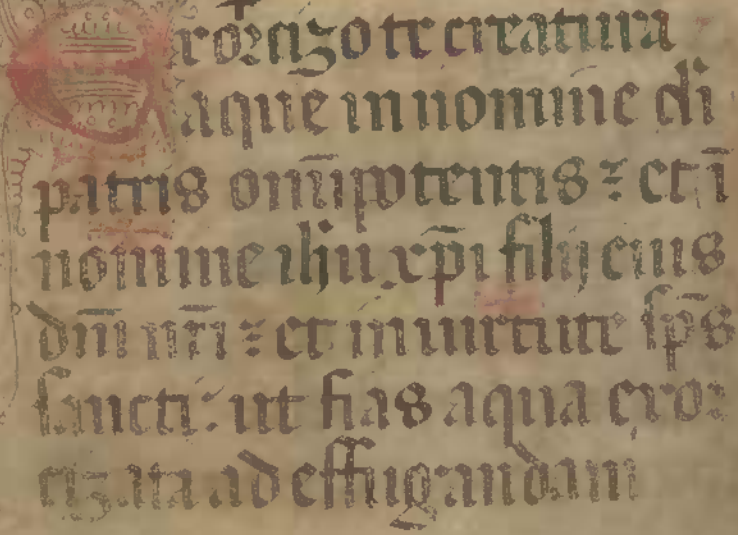 Exorcizo te creatura
aque in nomine dei
patris om̄ipotentis : et ī
nomine ihu xp̄i filij eius
dn̄i nr̄i : et in uirtute sp̄s
sancti : ut fias aqua exor
cizata ad effugandam